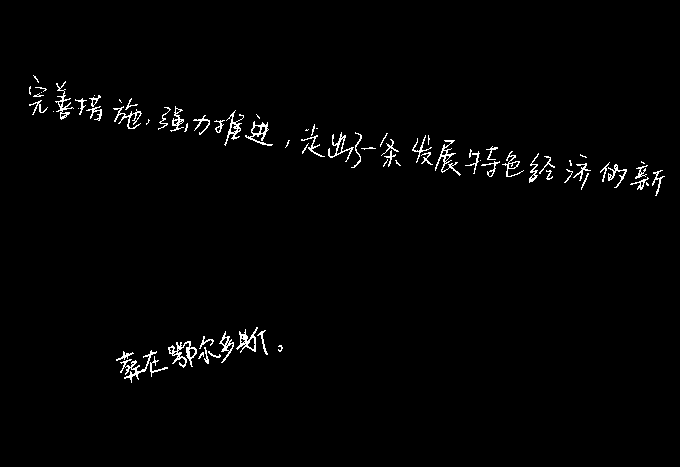 完善措施,强力推进,走出了一条发展特色经济的新
葬在鄂尔多斯。